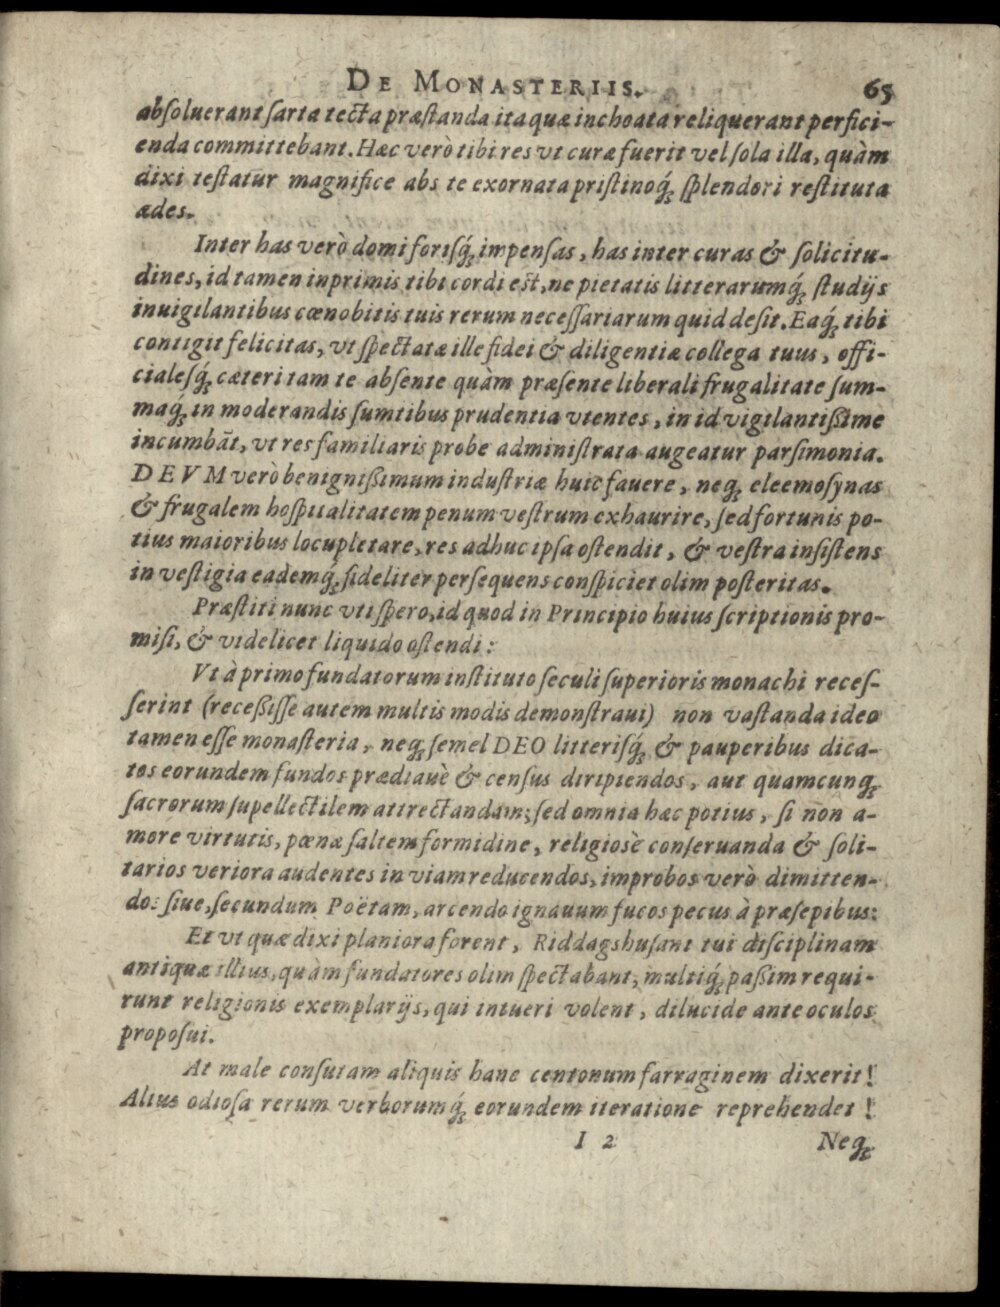 DE MONASTERIIS. 65
absoluerant sarta tecta præstanda ita quæ inchoata reliquerant perfici-
enda committebant. Hæc verò tibi res vt curæ fuerit vel sola illa, quàm
dixi testatur magnifice abs te exornata pristinoq́; splendori restituta
ædes.
Inter has verò domi forisq́; impensas, has inter curas & solicitu-
dines, id tamen inprimis tibi cordi est, ne pietatis litterarumq́; studijs
inuigilantibus cœnobitis tuis rerum necessariarum quid desit. Eaq́; tibi
contigit felicitas, vt spectatæ ille fidei & diligentiæ collega tuus, offi-
cialesq́; cæteri tam te absente quàm præsente liberali frugalitate sum-
maq́; in moderandis sumtibus prudentia vtentes, in id vigilantißime
incumbãt, vt res familiaris probe administrata augeatur parsimonia.
DEVM verò benignißimum industriæ huic fauere, neq; eleemosynas
& frugalem hospitalitatem penum vestrum exhaurire, sed fortunis po-
tius maioribus locupletare, res adhuc ipsa ostendit, & vestra insistens
in vestigia eademq́; fideliter persequens conspiciet olim posteritas.
Præstiti nunc vti spero, id quod in Principio huius scriptionis pro-
misi, & videlicet liquido ostendi:
Vt à primo fundatorum instituto seculi superioris monachi reces-
serint (receßisse autem multis modis demonstraui) non vastanda ideo
tamen esse monasteria, neq; semel DEO litterisq́; & pauperibus dica-
tos eorundem fundos prædiauè & census diripiendos, aut quamcunq;
sacrorum supellectilem attrectandam; sed omnia hæc potius, si non a-
more virtutis, pœnæ saltem formidine, religiosè conseruanda & soli-
tarios veriora audentes in viam reducendos, improbos verò dimitten-
do: siue, secundum Poëtam, arcendo ignauum fucos pecus à præsepibus:
Et vt quæ dixi planiora forent, Riddagshusani tui disciplinam
antiquæ illius, quàm fundatores olim spectabant, multiq́; paßim requi-
runt religionis exemplarijs, qui intueri volent, dilucide ante oculos
proposui.
At male consutam aliquis hanc centonum farraginem dixerit!
Alius odiosa rerum verborumq́; eorundem iteratione reprehendet!
I 2 Neq;